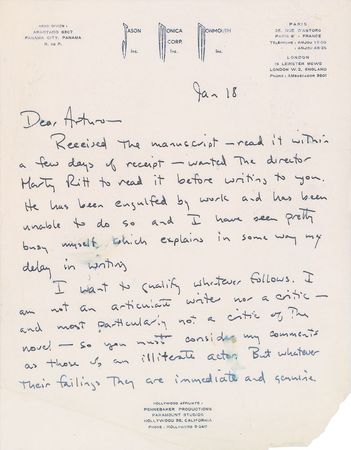 HEAD OFFICE:
APARTADO 6307
PANAMA CITY, PANAMA
R. DE P.
JASON
INC.
MONICA
CORP.
INC.
MONMOUTH
INC.
PARIS
FRANCE
LONDON
LONDON W. 2, ENGLAND
Jan 18
Dear Arturo—
Received the manuscript — read it within
a few days of receipt — wanted the director
Marty Ritt to read it before writing to you.
He has been engulfed by work and has been
unable to do so and I have been pretty
busy myself which explains in some way my
delay in writing
I want to qualify whatever follows. I
am not an articulate writer nor a critic —
and most particularly not a critic of the
novel — so you must consider my comments
as those of an illiterate actor. But whatever
their failings they are immediate and genuine
HOLLYWOOD AFFILIATE:
PENNEBAKER PRODUCTIONS
PARAMOUNT STUDIOS
HOLLYWOOD 38, CALIFORNIA
PHONE: HOLLYWOOD 9-2411